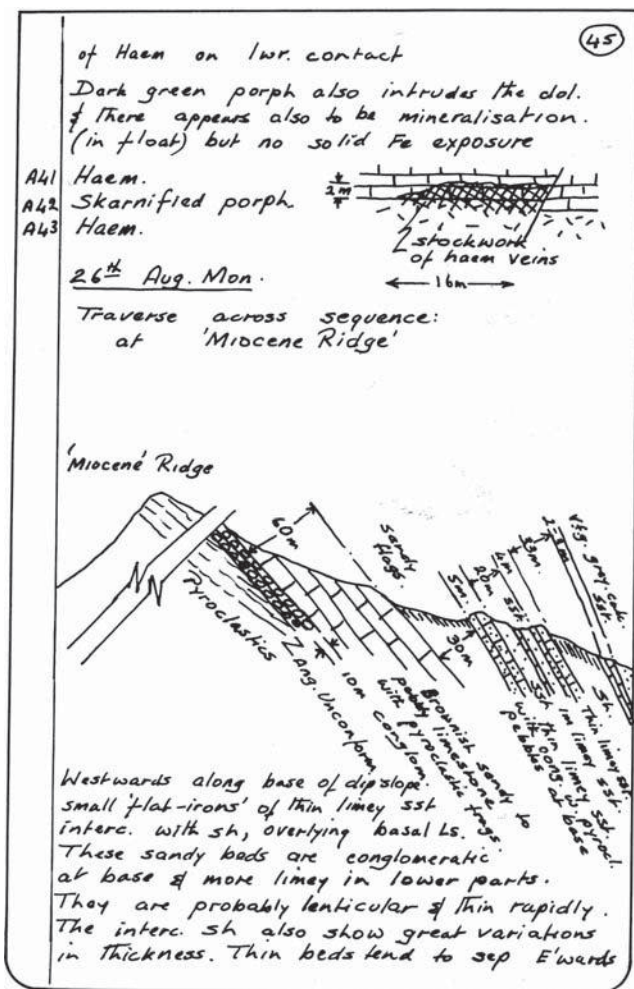 45
of Haem on lwr. contact
Dark green porph also intrudes the dol.
& there appears also to be mineralisation.
(in float) but no solid Fe exposure
A41 Haem.
A42 Skarnified porph.
A43 Haem.
2m
stockwork
of haem veins
16m
26th Aug. Mon.
Traverse across sequence:
at 'Miocene Ridge'
'Miocene' Ridge
60m
Sandy
flags.
5m.
20m
4m
sst
33m.
2-3m
v.f.g. grey. calc.
sst.
30m
Pyroclastics
Ang. Unconform
10m
conglom
Brownish sandy to
pebbly limestone
with pyroclastic frags
Sst thin limey sst.
with cong. w pyrocl.
pebbles at base
1m limey sst.
Thin limey sst.
Sh.
Westwards along base of dipslope.
small 'flat-irons' of thin limey sst
interc. with sh, overlying basal Ls.
These sandy beds are conglomeratic
at base & more limey in lower parts.
They are probably lenticular & thin rapidly.
The interc. sh also show great variations
in thickness. Thin beds tend to sep E'wards